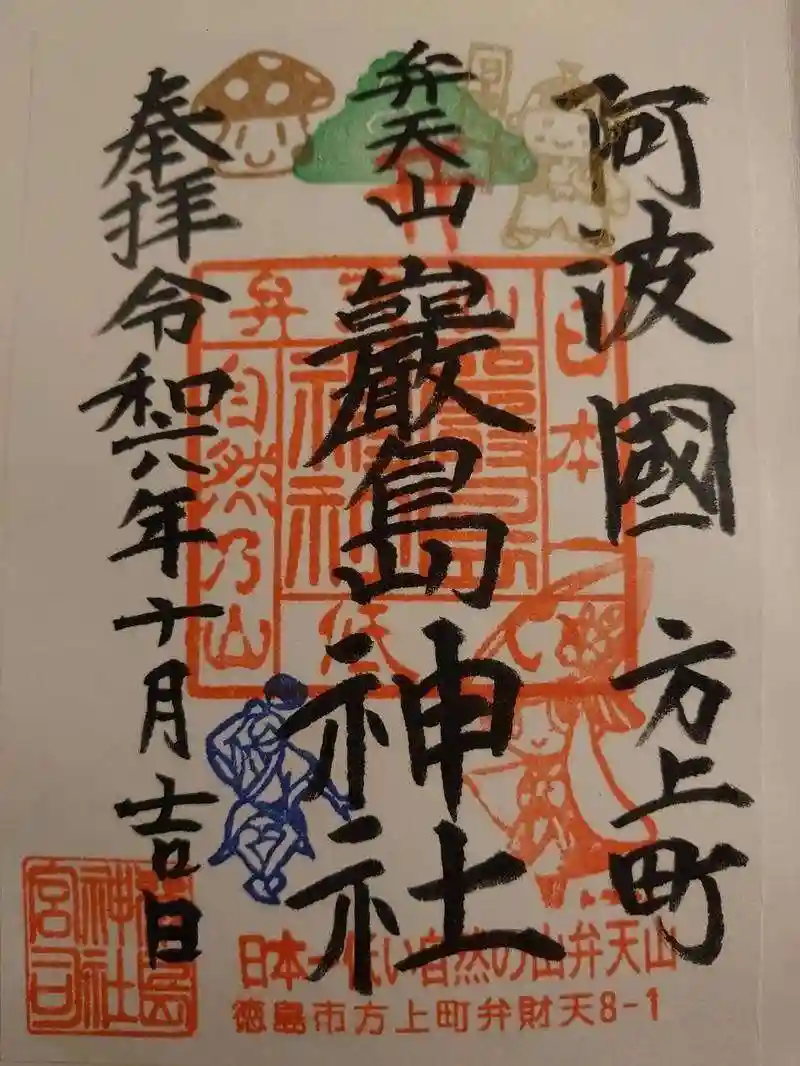 阿波國 方上町
弁天山
巖島神社
奉拝 令和六年十月吉日
日本一
低い
自然乃山
弁天山
巖島神社
巖島神社宮司
日本一低い自然の山弁天山
徳島市方上町弁財天8-1